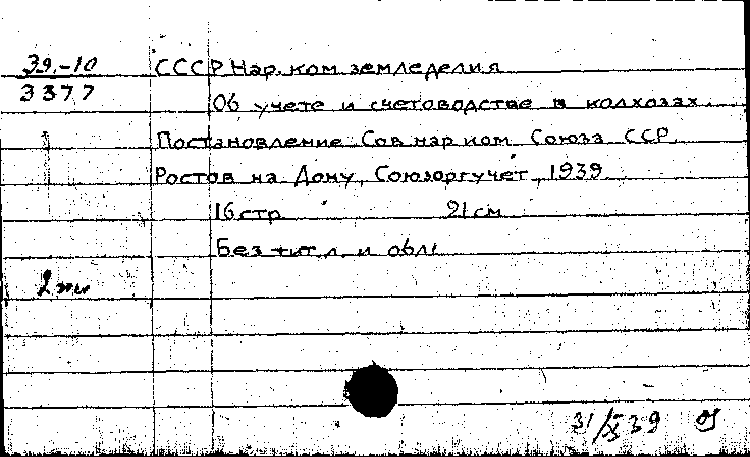 39.-10 СССР Нар. ком. земледелия
3377
Об учете и счетоводстве в колхозах.
Постановление Сов. нар. ком. Союза ССР.
Ростов на Дону, Союзоргучет, 1939
16 стр. 21 см
Без тит. л. и обл.
31/X 39